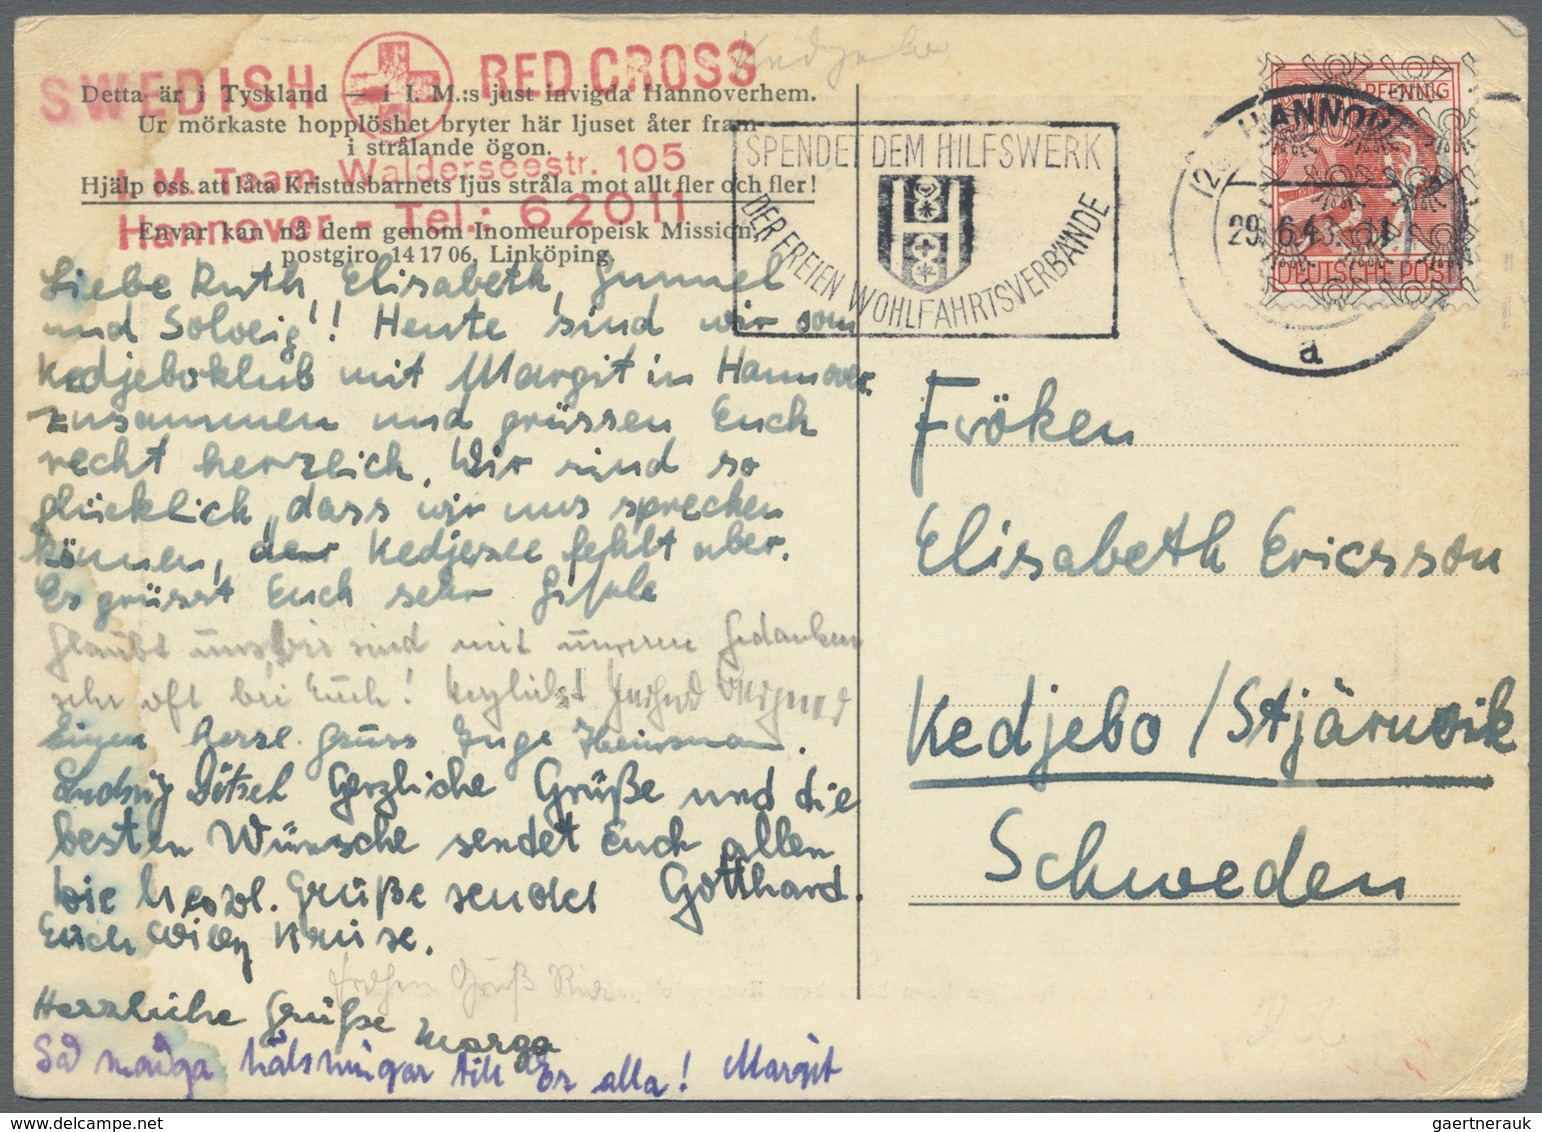 SWEDISH RED CROSS
Kedjebo
Detta är i Tyskland — i I. M.:s just invigda Hannoverhem.
Ur mörkaste hopplöshet bryter här ljuset åter fram
i strålande ögon.
I. M. Team Walderseestr. 105
Hjälp oss att låta Kristusbarnets ljus stråla mot allt fler och fler!
Hannover - Tel.: 62011
Envar kan nå dem genom Inomeuropeisk Mission,
postgiro 14 17 06, Linköping.
Liebe Ruth, Elisabeth, Gunnel
und Solveig!! Heute sind wir vom
Kedjeboklub mit Margit in Hannover
zusammen und grüssen Euch
recht herzlich. Wir sind so
glücklich, dass wir uns sprechen
können, der Kedjesee fehlt aber.
Es grüsst Euch sehr Gisela
Glaubt uns, wir sind mit unseren Gedanken
sehr oft bei Euch! Herzlichst
Einen herzl. Gruss Inge Heinemann.
Ludwig Dötsch Herzliche Grüße und die
besten Wünsche sendet Euch allen
Gotthard.
Die herzl. Grüße sendet
Euch Willy Kruse.
Frohen Gruß
Herzliche Grüße Marga
Så många hälsningar till Er alla! Margit
SPENDET DEM HILFSWERK
DER FREIEN WOHLFAHRTSVERBÄNDE
HANNOVER
29.6.48.-11
a
PFENNIG
DEUTSCHE POST
Fröken
Elisabeth Ericsson
Kedjebo / Stjärnvik
Schweden
gaertnerauk